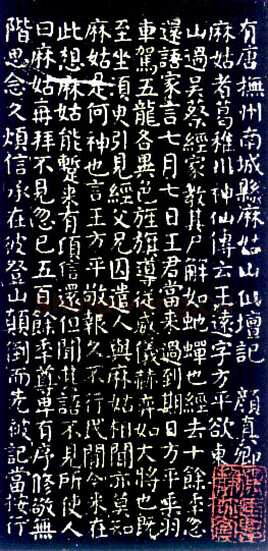 有唐撫州南城縣麻姑山仙壇記 顏真卿
麻姑者葛稚川神仙傳云王遠字方平欲東
山過吳蔡經家教其尸解如虵蟬也經去十餘年忽
還語家言七月七日王君當來過到期日方平乘羽
車駕五龍各異色旌旗導從威儀赫弈如大將也既
至坐須臾引見經父兄因遣人與麻姑相聞亦莫知
麻姑是何神也言王方平敬報久不行民間今來在
此想麻姑能蹔來有頃信還但聞其語不見所使人
曰麻姑再拜不見忽已五百餘年尊卑有序修敬無
階思念久煩信承在彼登山顛倒而先被記當按行